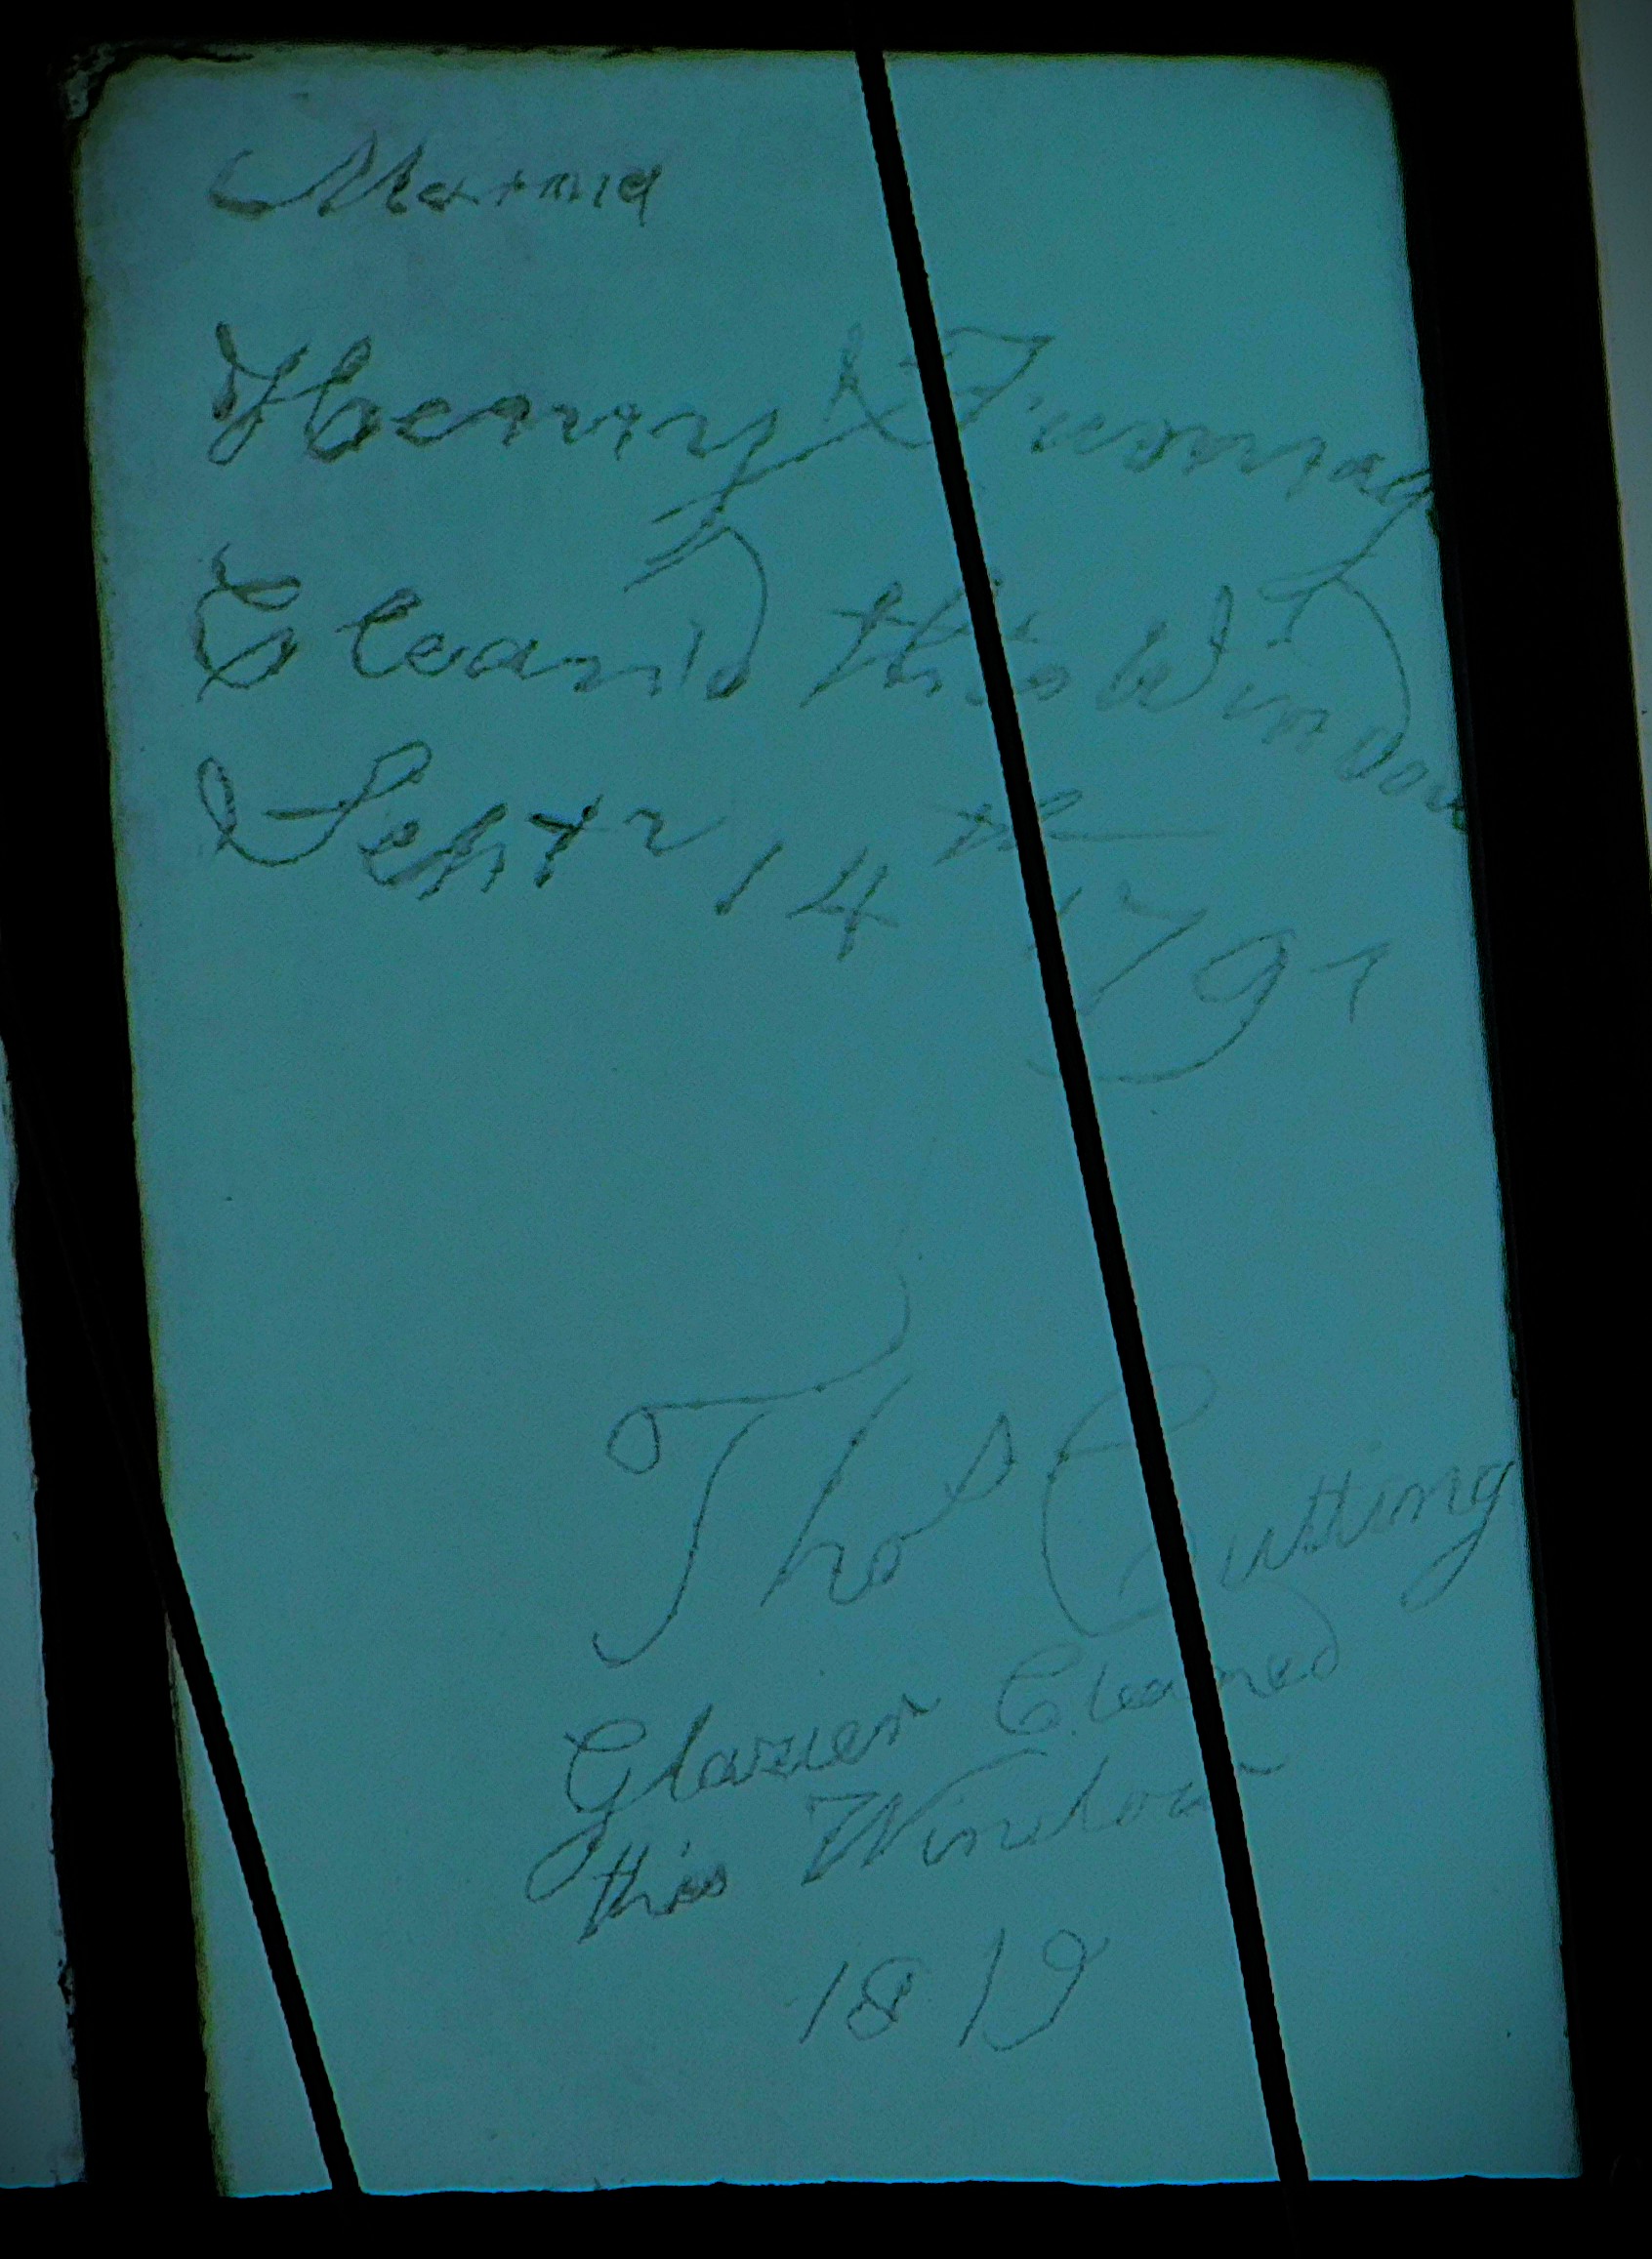 Henry
Clean'd this Window
Septr 14th 1797
Thos Cutting
Glazier Cleaned
this Window
1819